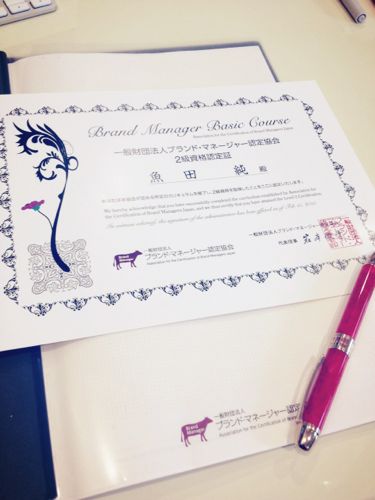 Brand Manager Basic Course
Association for the Certification of Brand Managers Japan
一般財団法人ブランド・マネージャー認定協会
2級資格認定証
魚田 純 殿
We hereby acknowledge that you have successfully completed the curriculum established by Association
for Certification of Brand Managers Japan,
一般財団法人
ブランド・マネージャー認定協会
Association for the Certification of Brand Managers Japan
一般財団法人ブランド・マネージャー
代表理事
Brand
Manager
一般財団法人
ブランド・マネージャー認定
Association for the Certification of Brand